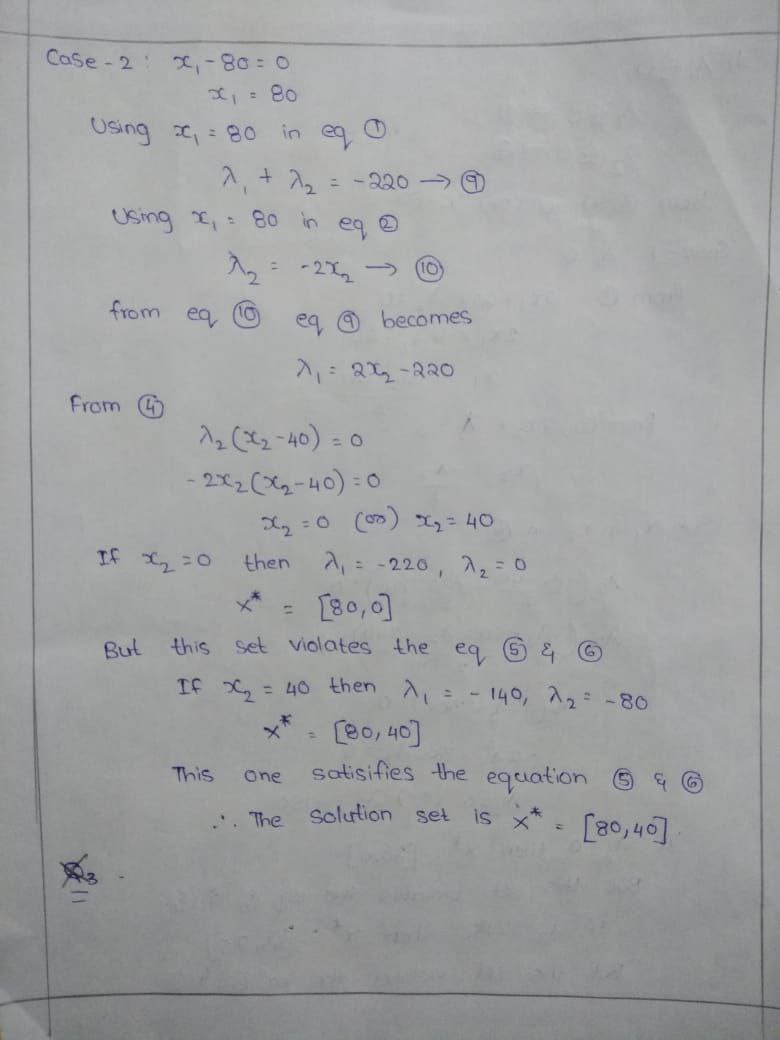 Case-2: x₁-80=0
x₁ = 80
Using x₁ = 80 in eq ①
λ₁ + λ₂ = -220 → ⑨
Using x₁ = 80 in eq ②
λ₂ = -2x₂ → ⑩
from eq ⑩ eq ⑨ becomes
λ₁ = 2x₂-220
From ④
λ₂(x₂-40) = 0
-2x₂(x₂-40) = 0
x₂ = 0 (or) x₂ = 40
If x₂ = 0 then λ₁ = -220, λ₂ = 0
x* = [80,0]
But this set violates the eq ⑤ & ⑥
If x₂ = 40 then λ₁ = -140, λ₂ = -80
x* = [80,40]
This one satisifies the equation ⑤ & ⑥
∴ The solution set is x* = [80,40].